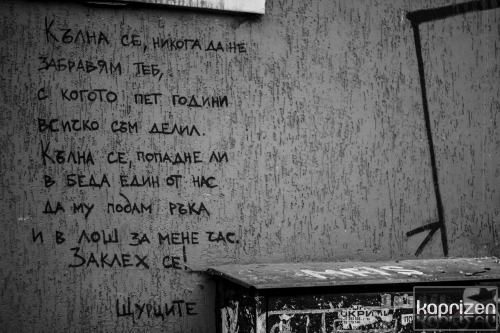 Кълна се, никога да не
забравям теб,
с когото пет години
всичко съм делил.
Кълна се, попадне ли
в беда един от нас
да му подам ръка
и в лош за мене час.
Заклех се!
Щурците
kaprizen